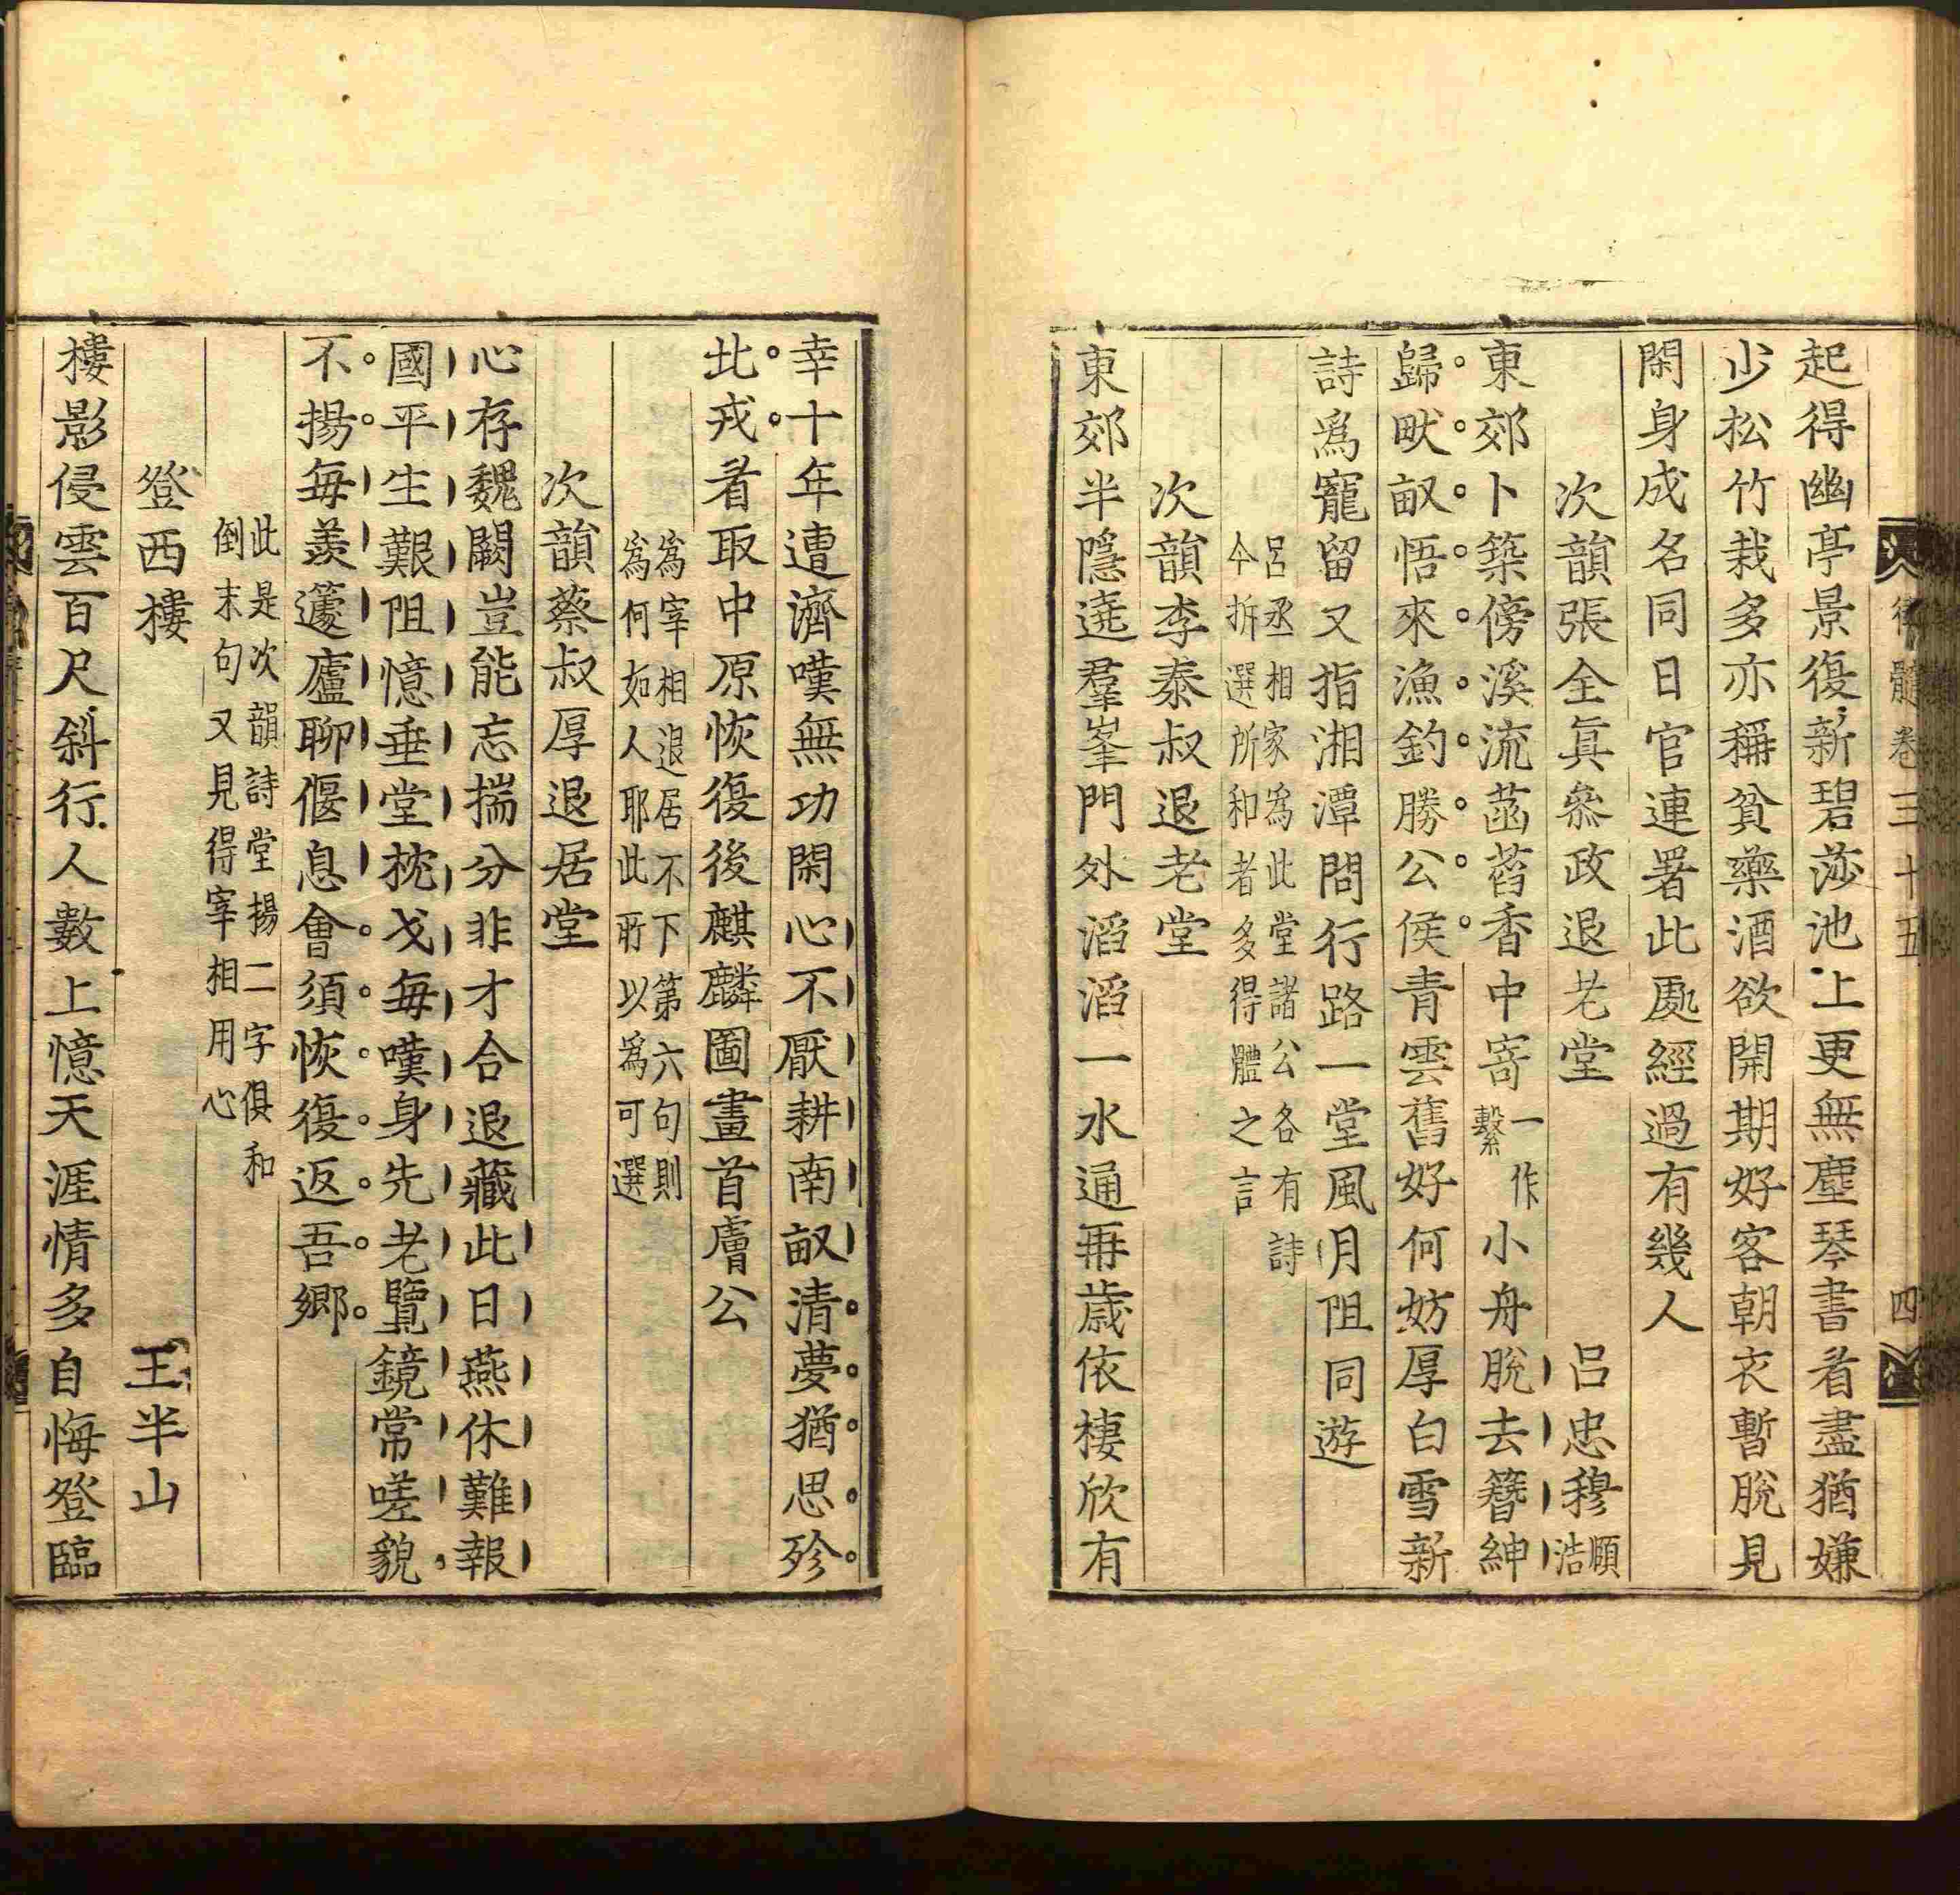 髓卷三十五 四
起得幽亭景復新碧莎池上更無塵琴書看盡猶嫌
少松竹栽多亦稱貧藥酒欲開期好客朝衣暫脫見
閑身成名同日官連署此處經過有幾人
次韻張全眞叅政退老堂 呂忠穆頤浩
東郊卜築傍溪流菡萏香中寄一作繫小舟脫去簪紳
歸畎畝悟來漁釣勝公侯青雲舊好何妨厚白雪新
詩爲寵留又指湘潭問行路一堂風月阻同遊
呂丞相家為此堂諸公各有詩
今拆選所和者多得體之言
次韻李泰叔退老堂
東郊半隱遶羣峯門外滔滔一水通再歲依棲欣有
幸十年遭濟嘆無功閑心不厭耕南畝清夢猶思殄
北戎看取中原恢復後麒麟圖畫首膚公
為宰相退居不下第六句則
為何如人耶此所以為可選
次韻蔡叔厚退居堂
心存魏闕豈能忘揣分非才合退藏此日燕休難報
國平生艱阻憶垂堂枕戈每嘆身先老覽鏡常嗟貌
不揚每羨籧廬聊偃息會須恢復返吾鄉
此是次韻詩堂揚二字俱和
倒末句又見得宰相用心
登西樓 王半山
樓影侵雲百尺斜行人數上憶天涯情多自悔登臨